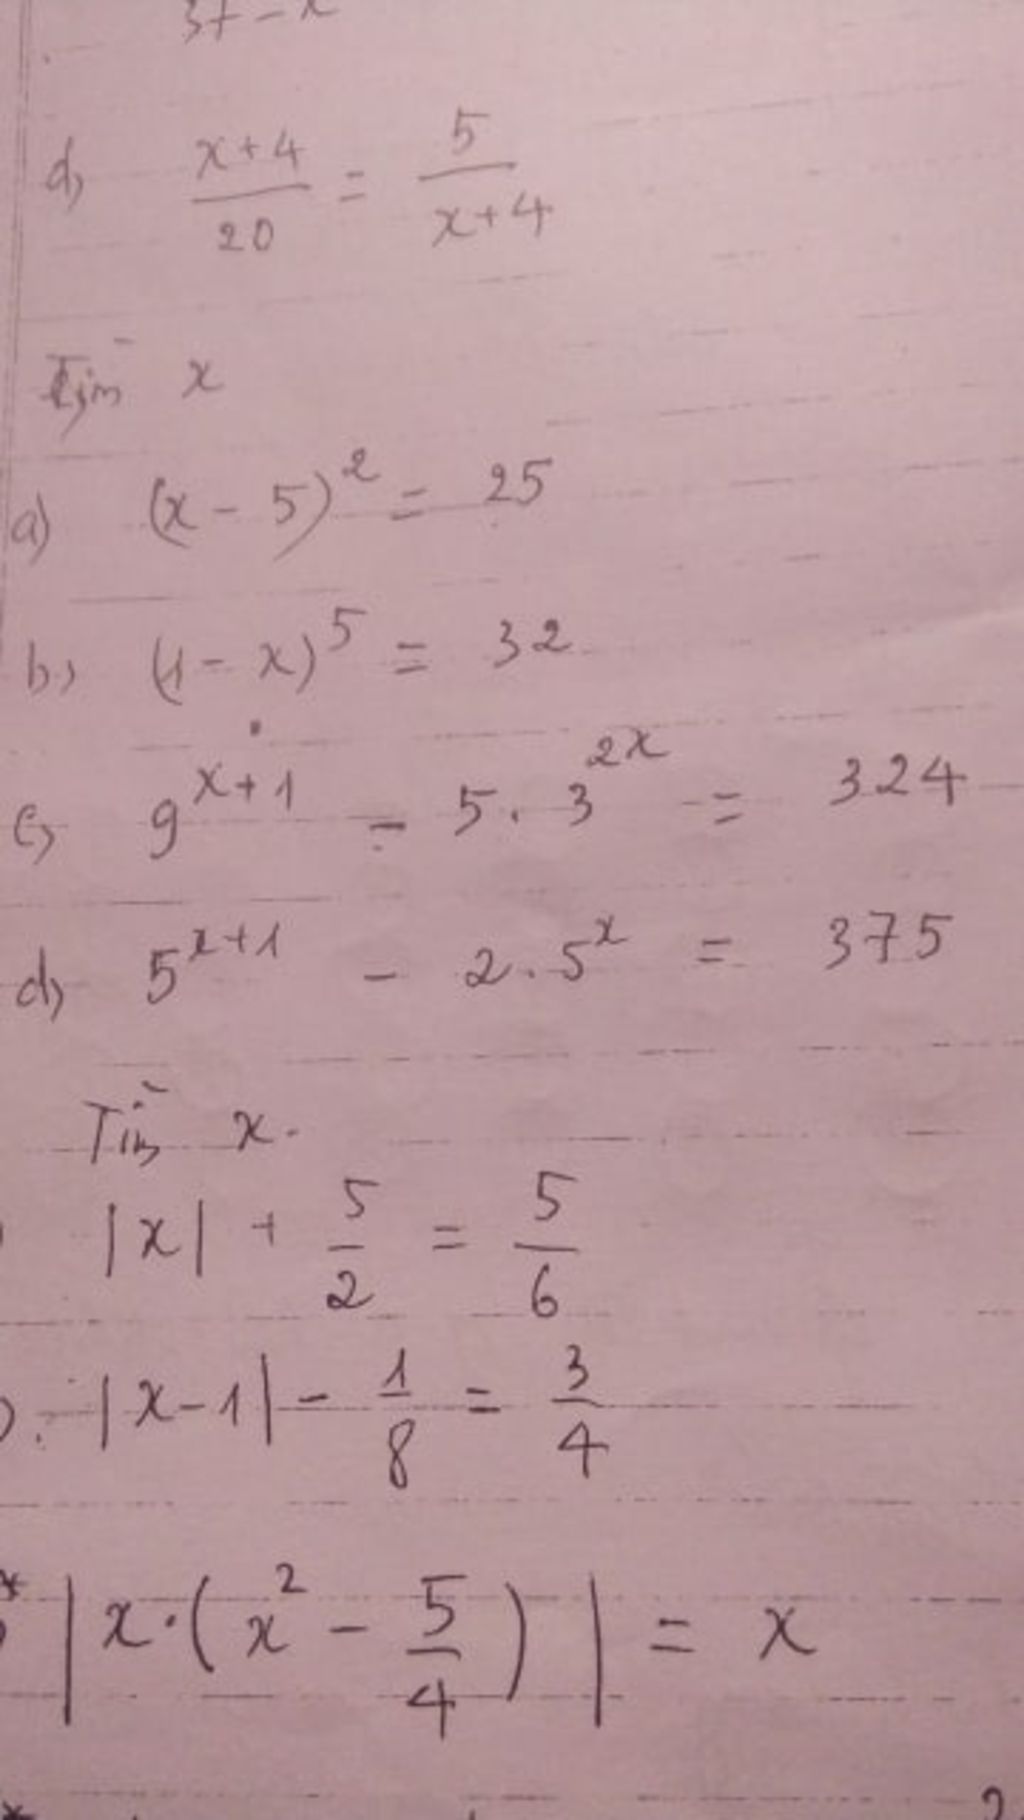 37 - x
d, (x+4)/20 = 5/(x+4)
Tìm x
a) (x - 5)² = 25
b, (1 - x)⁵ = 32
c, 9^(x+1) - 5 . 3^(2x) = 324
d, 5^(x+1) - 2 . 5^x = 375
Tìm x.
|x| + 5/2 = 5/6
. |x-1| - 1/8 = 3/4
* |x.(x² - 5/4)| = x